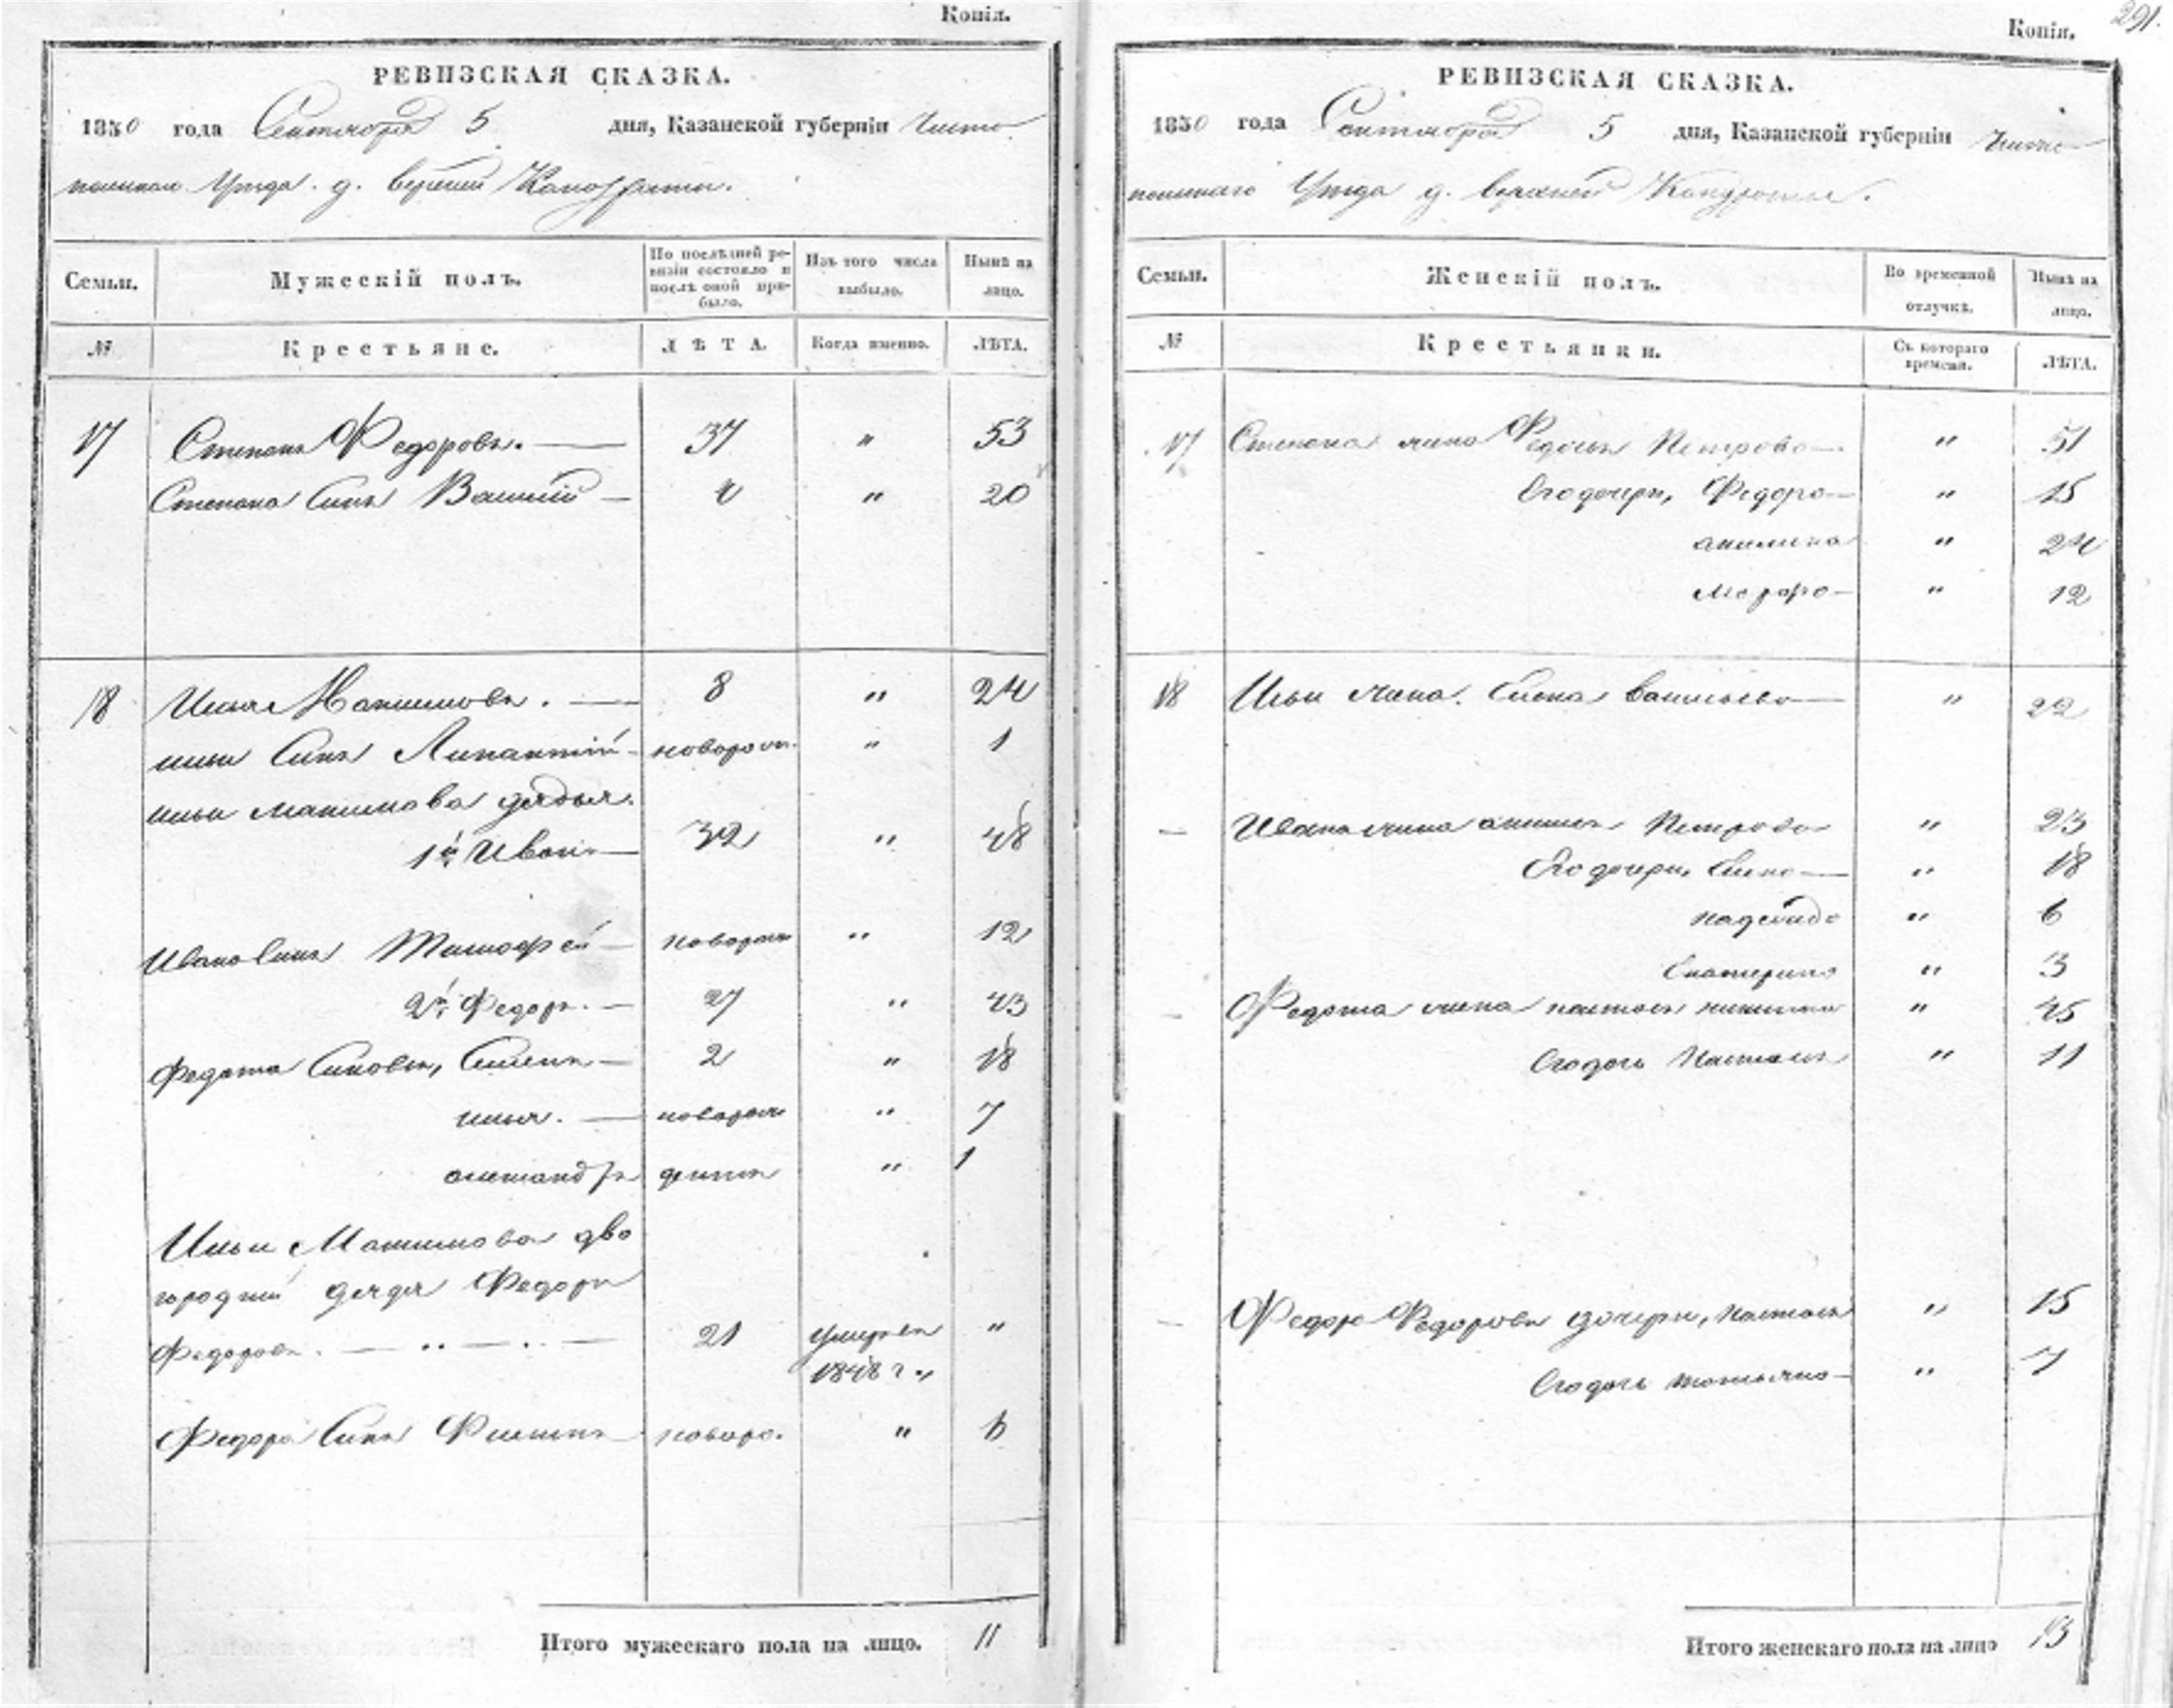 Копія.
РЕВИЗСКАЯ СКАЗКА.
1850 года Сентября 5 дня, Казанской губерніи Чисто
польскаго Уѣзда д. верхней
Семьи. Мужескій полъ. По послѣдней ре-
визіи состояло и
послѣ оной при-
было. Изъ того числа
выбыло. Нынѣ на
лицо.
№ Крестьяне. ЛѢТА. Когда именно. ЛѢТА.
17 Степанъ Федоровъ. — 37 " 53
Степана Сынъ Василій — 4 " 20
18 Илья Максимовъ. — 8 " 24
ильи Сынъ новорож. " 1
ильи максимова дядья.
1й Иванъ — 32 " 48
Ивана Сынъ Тимофей — новорож " 12
2й — 27 " 43
Федота Сыновья, — 2 " 18
илья. — новорож " 7
александръ " 1
Ильи Максимова дво
юродный дядя Федоръ
Федоровъ. — " — . — 21 умеръ "
1848 г.
Федора Сынъ Филипъ новоро. " 6
Итого мужескаго пола на лицо. 11
291.
Копія.
РЕВИЗСКАЯ СКАЗКА.
1850 года Сентября 5 дня, Казанской губерніи Чисто
польскаго Уѣзда д. верхней
Семьи. Женскій полъ. Во временной
отлучкѣ. Нынѣ на
лицо.
№ Крестьянки. Съ котораго
времени. ЛѢТА.
17 Степана жена Федосья Петрова — " 51
Его дочери, Федора — " 15
акилина " 24
" 12
18 Ильи жена. Елена васильева — " 22
— Ивана жена Петрова " 23
Его дочери, Елена — " 18
надежда " 6
Екатерина " 3
— Федота жена настась " 45
Его дочь Настась " 11
— Федора Федорова дочери, настась " 15
Его дочь татьяна — " 7
Итого женскаго пола на лицо 13